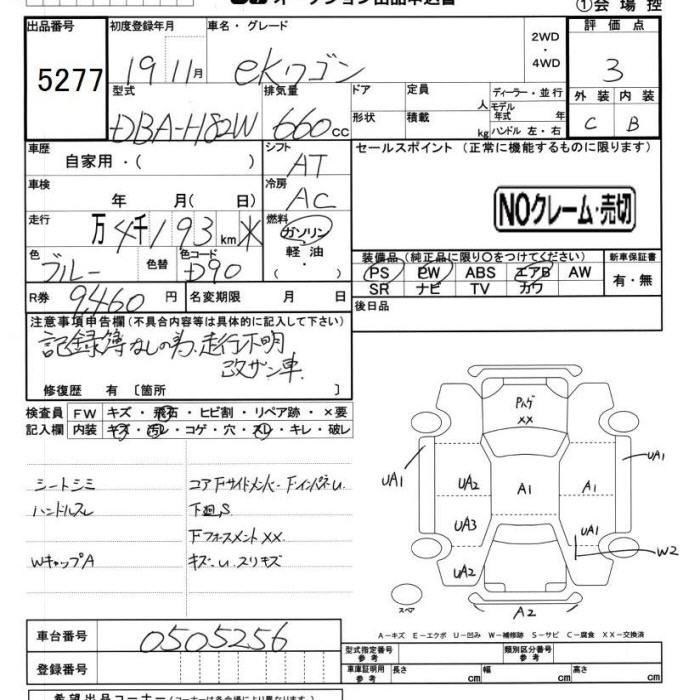 オークション出品申込書
①会場控
出品番号
5277
初度登録年月
19 11月
車名・グレード
eKワゴン
2WD
・
4WD
評価点
3
外装 内装
C B
型式
DBA-H82W
排気量
660cc
ドア
定員
人
形状
積載
kg
ディーラー・並行
モデル年式 年
ハンドル 左・右
車歴
自家用・( )
シフト
AT
車検
年 月( 日)
冷房
AC
走行
万4千193km
燃料
ガソリン
・
軽油
・
( )
色
ブルー
色替
色コード
D90
R券
9,460円
名変期限 月 日
セールスポイント (正常に機能するものに限ります)
NOクレーム・売切
装備品 (純正品に限り〇をつけてください)
PS PW ABS エアB AW
SR ナビ TV カワ
新車保証書
有・無
後日品
注意事項申告欄 (不具合内容等は具体的に記入して下さい)
記録簿なしの為、走行不明
改ザン車
修復歴 有 〔箇所 〕
検査員
記入欄
FW キズ・飛石・ヒビ割・リペア跡・×要
内装 キズ・汚レ・コゲ・穴・スレ・キレ・破レ
シートシミ
ハンドルスレ
WキャップA
コアFサイドメンバー Fインパネu.
下廻S
Fフォースメント××
キズ・u.スリキズ
××
UA1
UA2
UA3
UA2
A1
A1
UA1
UA1
W2
A2
スペア
A-キズ E-エクボ U-凹み W-補修跡 S-サビ C-腐食 XX-交換済
車台番号
0505256
登録番号
型式指定番号
参考
類別区分番号
参考
車庫証明用
参考
長さ cm
幅 cm
高さ cm
希望出品コーナー (コーナーは各会場により異なります)